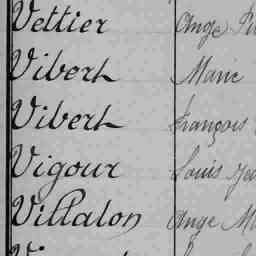 Vettier Ange
Vibert Marie
Vibert François
Vigour Louis
Villalon Ange